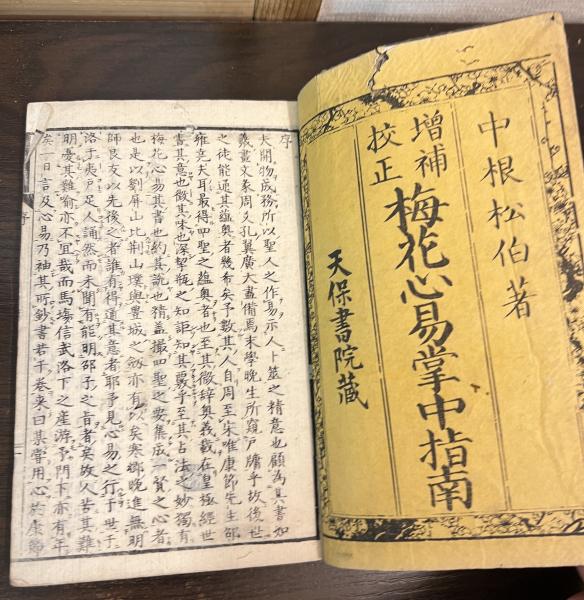 中根松伯著
増補
校正
梅花心易掌中指南
天保書院蔵
序
夫開物成務所以聖人之作易示人卜筮之精意也顧為其書如
義畫文彖周爻孔翼廣大盡備焉末學晚生所窺戸牖乎故後世
之徒能通其蘊奥者幾希矣予數其人自周至宋唯康節先生邵
雍堯夫耳最得四聖之蘊奥者也至其微辞奥義載在皇極經世
書其意也微其味也深挈瓶之知詎知其要乎至其占法之妙獨有
梅花心易其書也約其説也精盖撮四聖之要集成一賢之心者
也是以劉屏山比荆山璞與豊城之劔亦有以矣寒郷晩進無明
師良友以先後之者誰有得通其意者耶予見心易之行于世于
洛于夷戸足人誦然而未聞有能明邵子之旨者矣故人苦其難
明憂其難窮亦不宜哉而馬塲信武洛下之産游予門下亦有年
矣一日言及心易乃袖其所鈔書若干巻来曰某嘗用心於康節
序
一